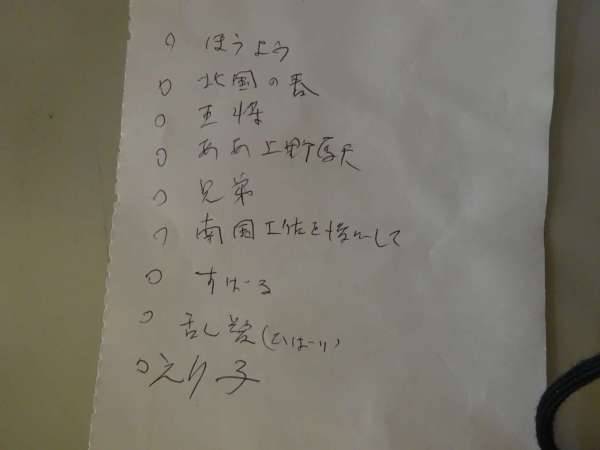 ○ ほうよう
○ 北国の春
○ 王将
○ ああ上野駅
○ 兄弟
○ 南国土佐を後にして
○ すばる
○ 乱れ髪(ひばり)
○ えり子